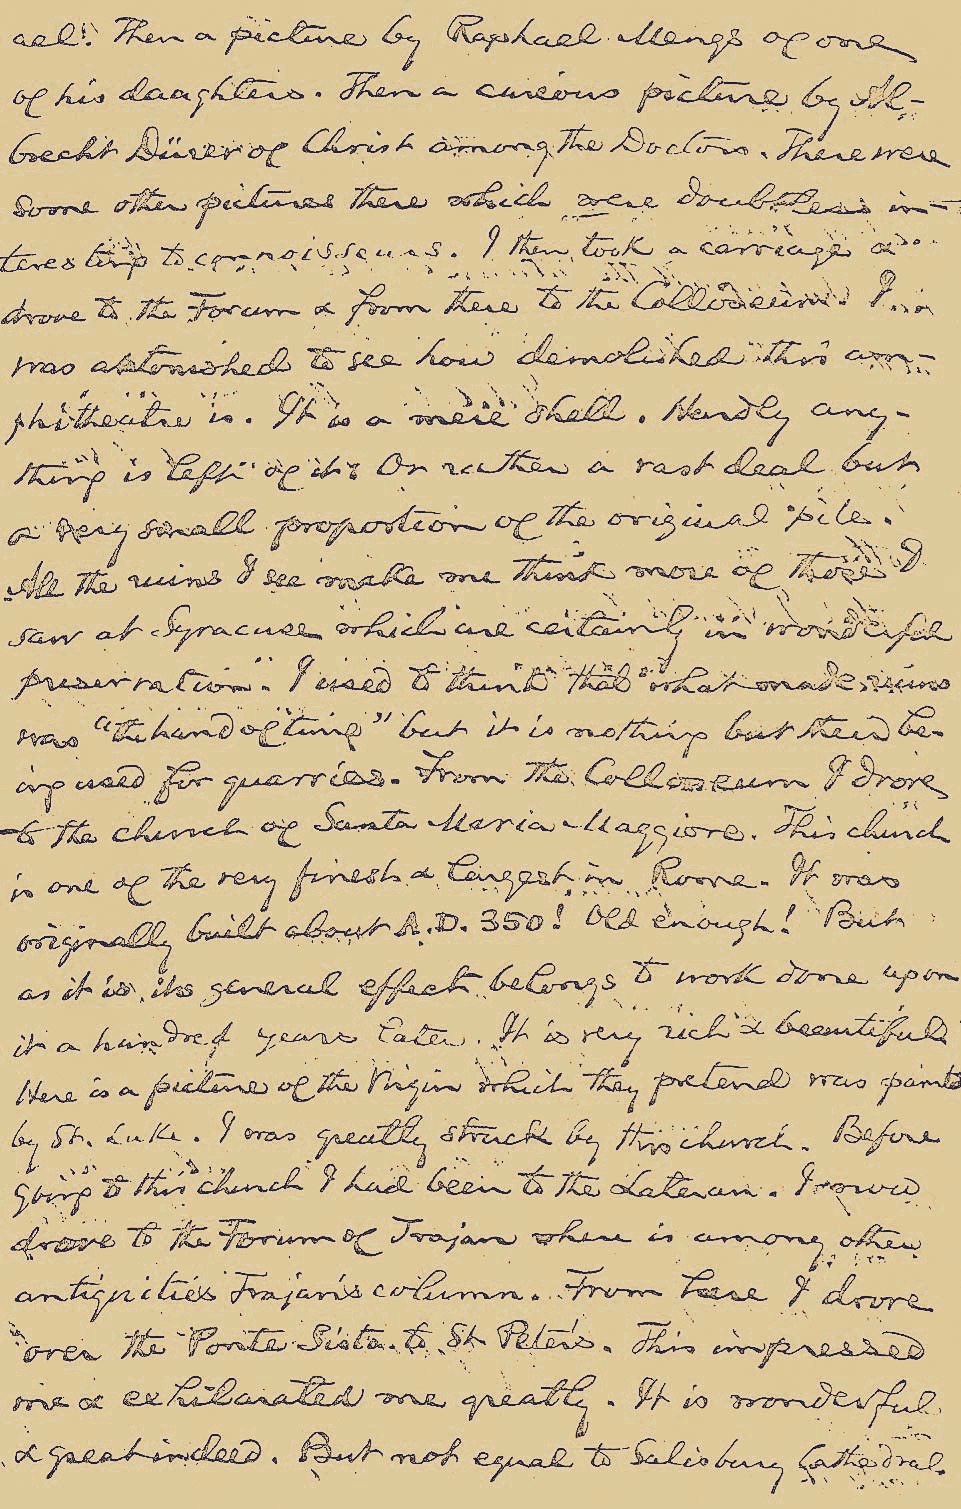 ael! Then a picture by Raphael Mengs of one
of his daughters. Then a curious picture by Al-
brecht Dürer of Christ among the Doctors. There were
some other pictures there which were doubtless in-
teresting to connoisseurs. I then took a carriage &
drove to the Forum & from there to the Colloseum. I
was astonished to see how demolished this am-
phitheatre is. It is a mere shell. Hardly any-
thing is left of it. Or rather a vast deal but
a very small proportion of the original pile.
All the ruins I see make me think more of those I
saw at Syracuse which are certainly in wonderful
preservation. I used to think that what made ruins
was "the hand of time" but it is nothing but their be-
ing used for quarries. From the Colloseum I drove
to the church of Santa Maria Maggiore. This church
is one of the very finest & largest in Rome. It was
originally built about A.D. 350! Old enough! But
as it is, its general effect belongs to work done upon
it a hundred years later. It is very rich & beautiful.
Here is a picture of the Virgin which they pretend was painted
by St. Luke. I was greatly struck by this church. Before
going to this church I had been to the Lateran. I now
drove to the Forum of Trajan where is among other
antiquities Trajan's column. From here I drove
over the Ponte Sisto to St Peter's. This impressed
me & exhilarated me greatly. It is wonderful
& great indeed. But not equal to Salisbury Cathedral.